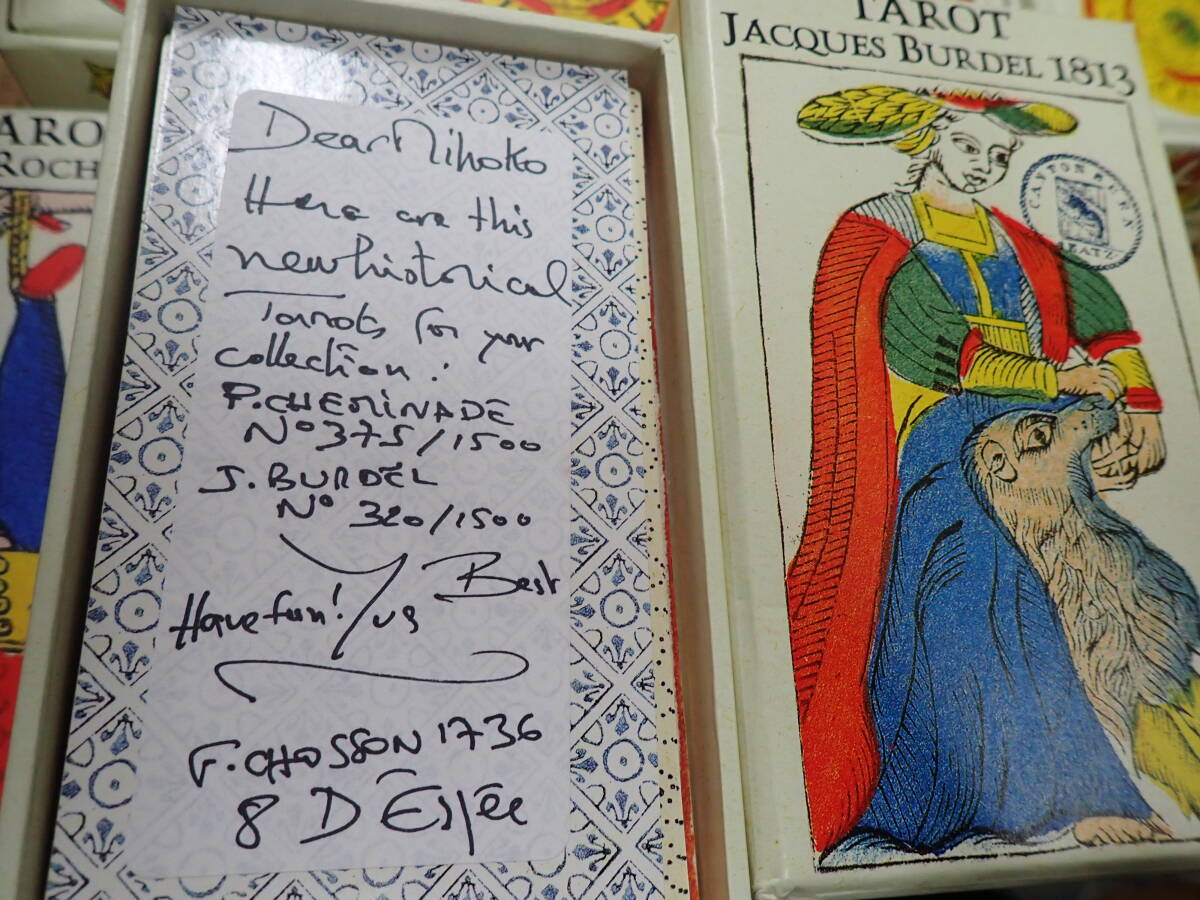 Dear Nihoko
Here are this
new historical
Tarots for your
collection:
P. CHEMINADE
N° 375/1500
J. BURDEL
N° 320/1500
Best
Have fun!
F. CHOSSON 1736
8 D'Épée
TAROT
JACQUES BURDEL 1813
ARO
ROCH